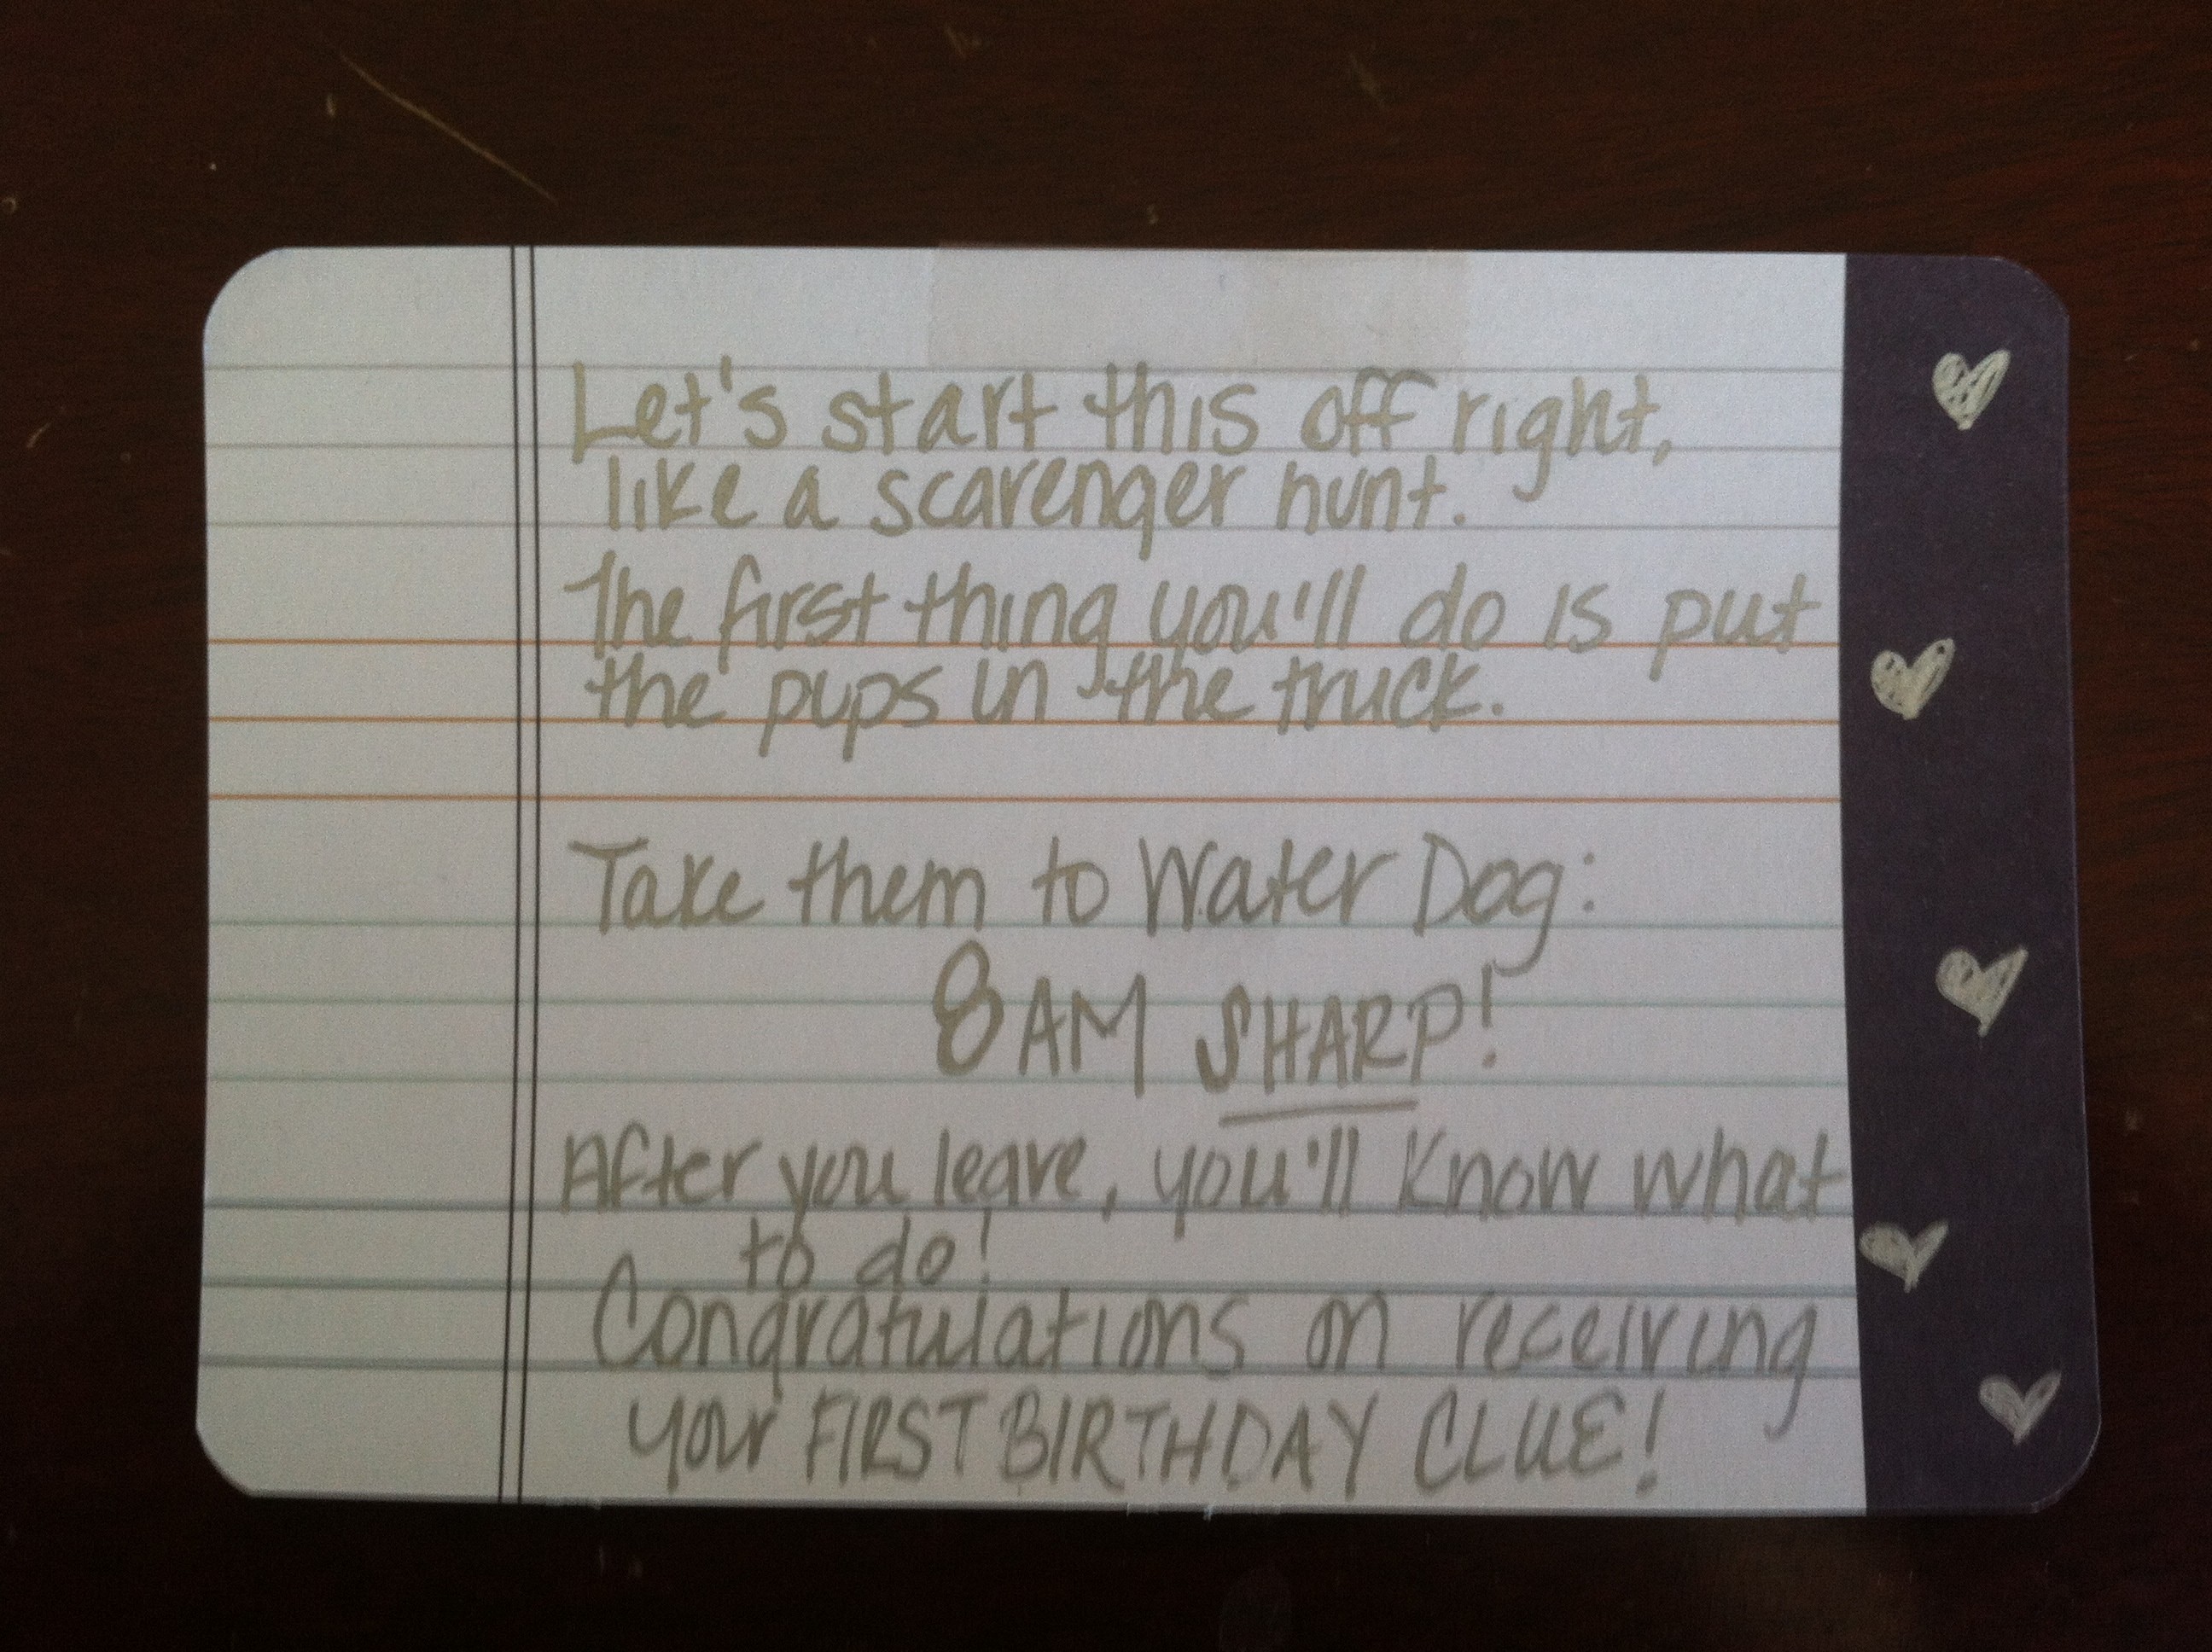 Let's start this off right,
like a scavenger hunt.
The first thing you'll do is put
the pups in the truck.
Take them to Water Dog:
8 AM SHARP!
After you leave, you'll know what
to do!
Congratulations on receiving
your FIRST BIRTHDAY CLUE!